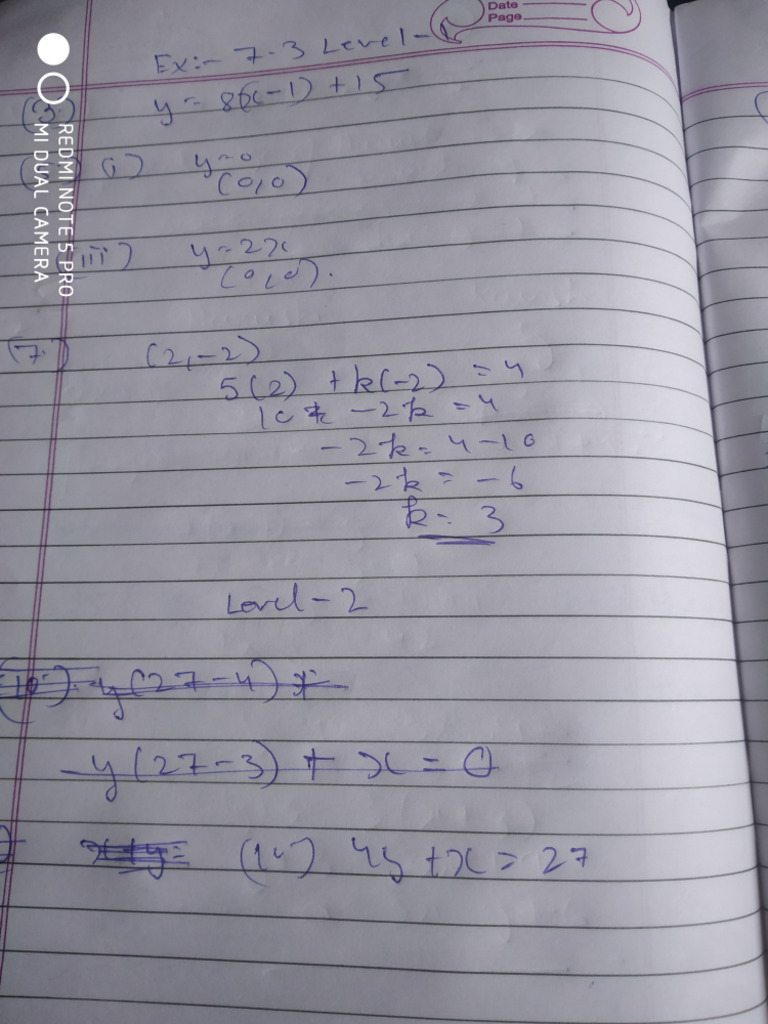 Date
Page
Ex:- 7.3 Level-1
(3) y = 8(x-1) + 15
(i) y=0
(0,0)
(iii) y=2x
(0,0).
(7) (2,-2)
5(2) + k(-2) = 4
10 - 2k = 4
-2k = 4-10
-2k = -6
k = 3
Level-2
(10) y(27-4) +
y(27-3) + x = 0
4y + x = 27
REDMI NOTE 5 PRO
MI DUAL CAMERA